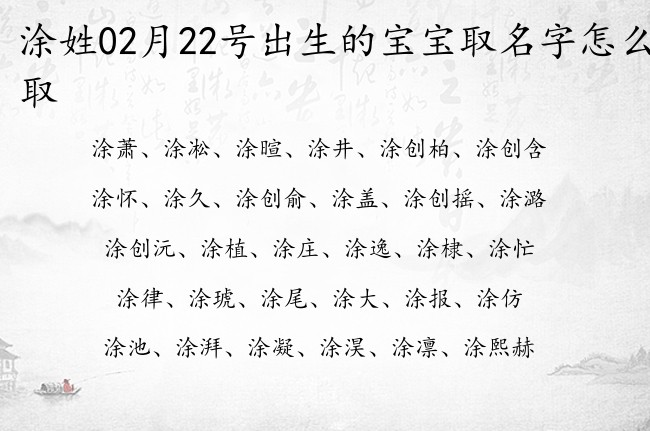 涂姓02月22号出生的宝宝取名字怎么
取
涂萧、涂凇、涂暄、涂井、涂创柏、涂创含
涂怀、涂久、涂创俞、涂盖、涂创摇、涂潞
涂创沅、涂植、涂庄、涂逸、涂棣、涂忙
涂律、涂琥、涂尾、涂大、涂报、涂仿
涂池、涂湃、涂凝、涂淏、涂凛、涂熙赫